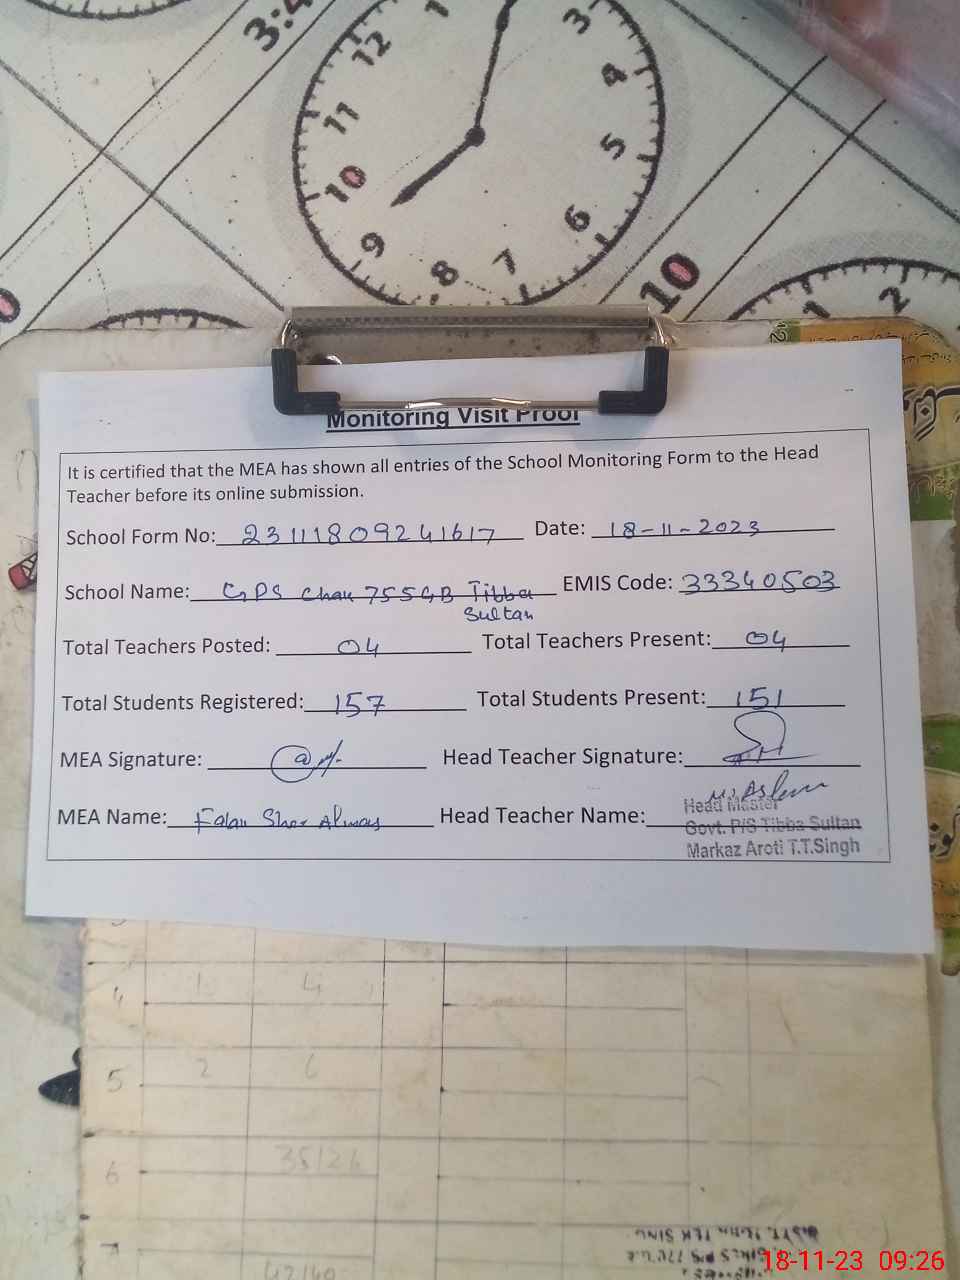 3:4
12 1 3
11 4
10 5
9 8 7 6
10
1 2
Monitoring Visit Proof
It is certified that the MEA has shown all entries of the School Monitoring Form to the Head
Teacher before its online submission.
School Form No: 23111809241617 Date: 18-11-2023
School Name: GPS Chak 755GB Tibba EMIS Code: 33340503
Sultan
Total Teachers Posted: 04 Total Teachers Present: 04
Total Students Registered: 157 Total Students Present: 151
MEA Signature: Head Teacher Signature:
MEA Name: Sher Head Teacher Name: M. Aslam
Head Master
Govt. P/S Tibba Sultan
Markaz Aroti T.T.Singh
4 4
5 2 6
6 35/26
18-11-23 09:26